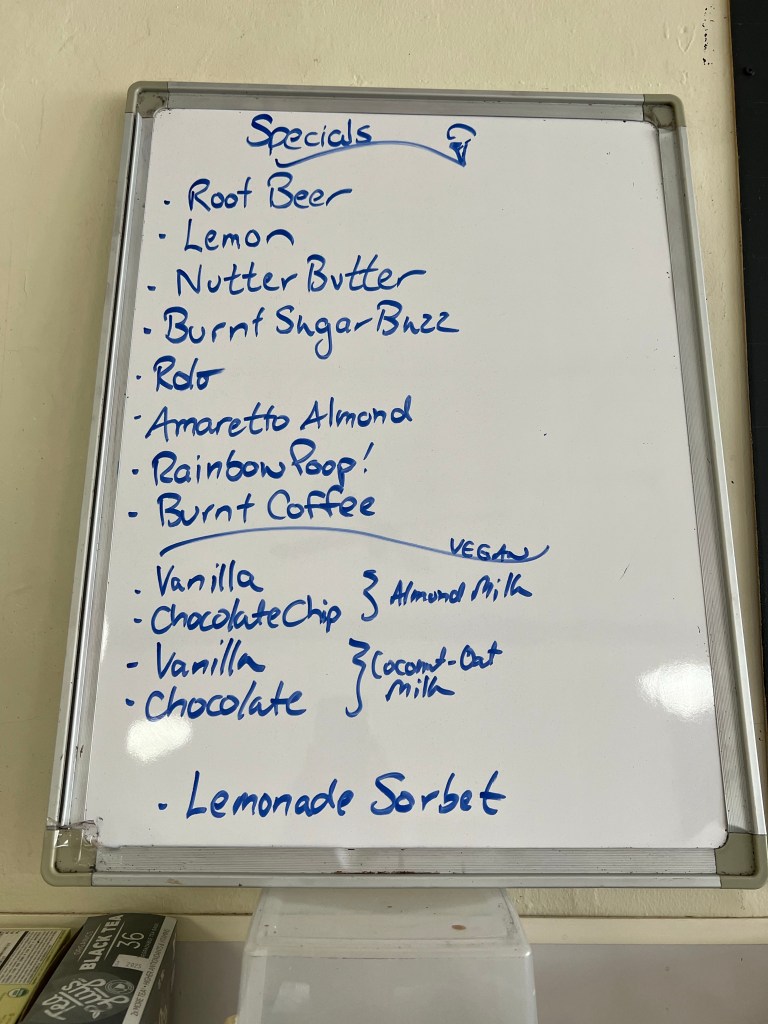 Specials
· Root Beer
· Lemon
· Nutter Butter
· Burnt Sugar Buzz
· Rolo
· Amaretto Almond
· Rainbow Poop!
· Burnt Coffee
VEGAN
· Vanilla
· Chocolate Chip
} Almond Milk
- Vanilla
· Chocolate
} Coconut-Oat
Milk
· Lemonade Sorbet
BLACK TEA
36